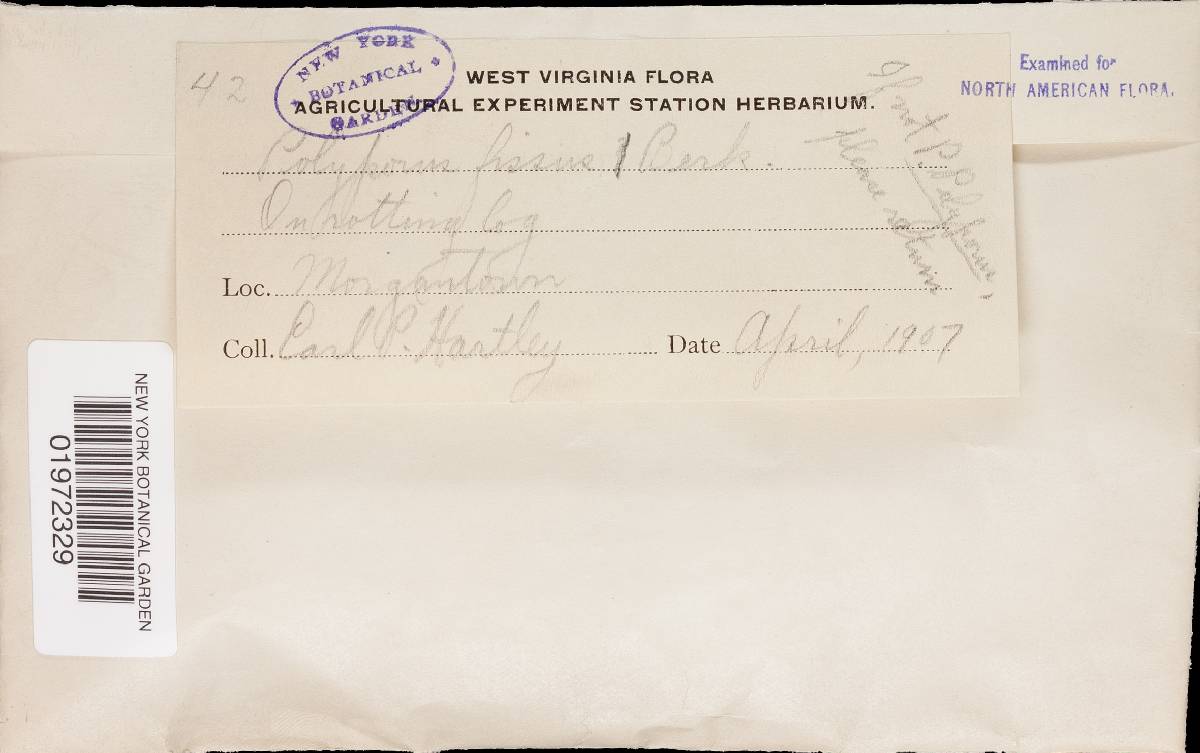 42
NEW YORK
BOTANICAL
GARDEN
WEST VIRGINIA FLORA
AGRICULTURAL EXPERIMENT STATION HERBARIUM.
Examined for
NORTH AMERICAN FLORA.
Polyporus fissus Berk.
On rotting log
Loc. Morgantown
Coll. Carl P. Hartley Date April, 1907
If not P. Polyporus,
please return
NEW YORK BOTANICAL GARDEN
01972329